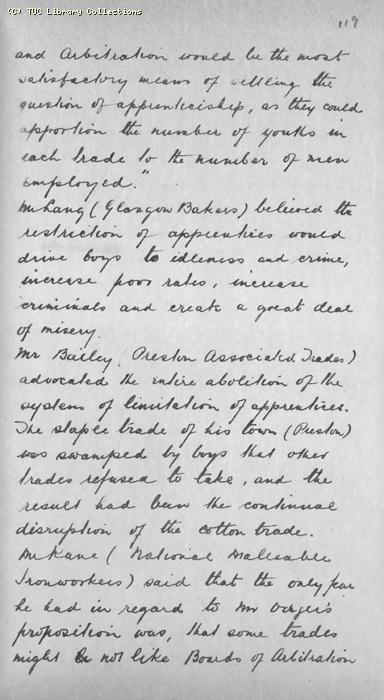 (C) TUC Library Collections
119
and Arbitration would be the most
satisfactory means of settling the
question of apprenticeship, as they could
apportion the number of youths in
each trade to the number of men
employed."
Mr Lang (Glasgow Bakers) believed the
restriction of apprentices would
drive boys to idleness and crime,
increase poor rates, increase
criminals and create a great deal
of misery.
Mr Bailey (Preston Associated Trades)
advocated the entire abolition of the
system of limitation of apprentices.
The staple trade of his town (Preston)
was swamped by boys that other
trades refused to take, and the
result had been the continual
disruption of the cotton trade.
Mr Kane (National Malleable
Ironworkers) said that the only fear
he had in regard to Mr
proposition was, that some trades
might not like Boards of Arbitration